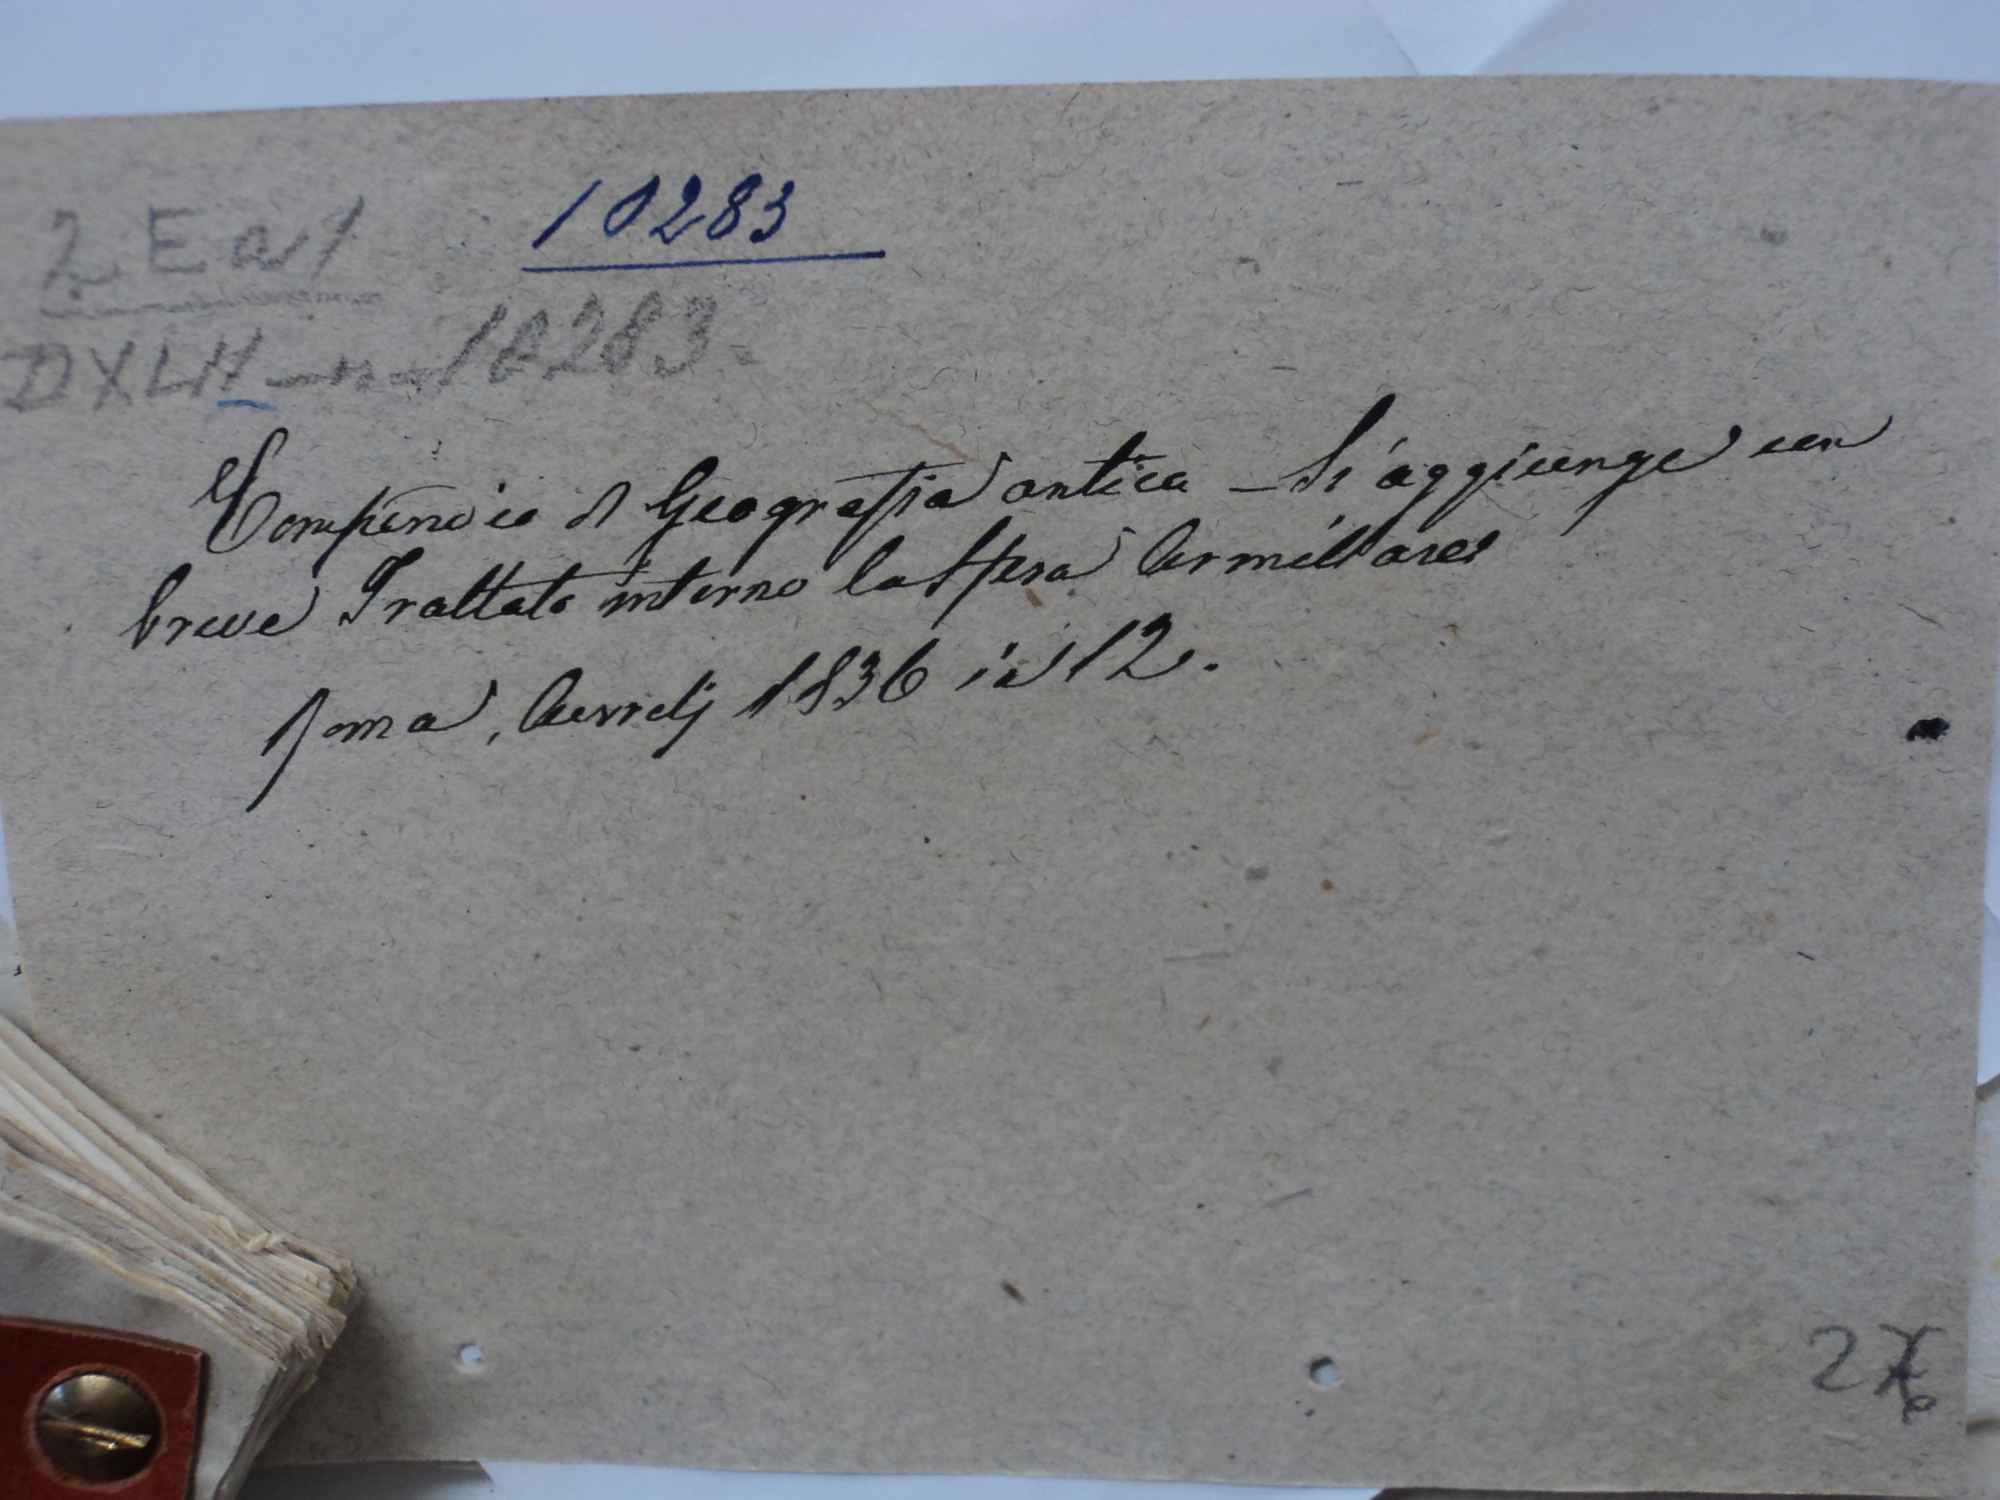 2 E a 1
10283
DXLII - n - 10283.
Compendio di Geografia antica - Si aggiunge un
breve Trattato intorno la Sfera Armillare
Roma, Aurelj 1836 in 12.
2